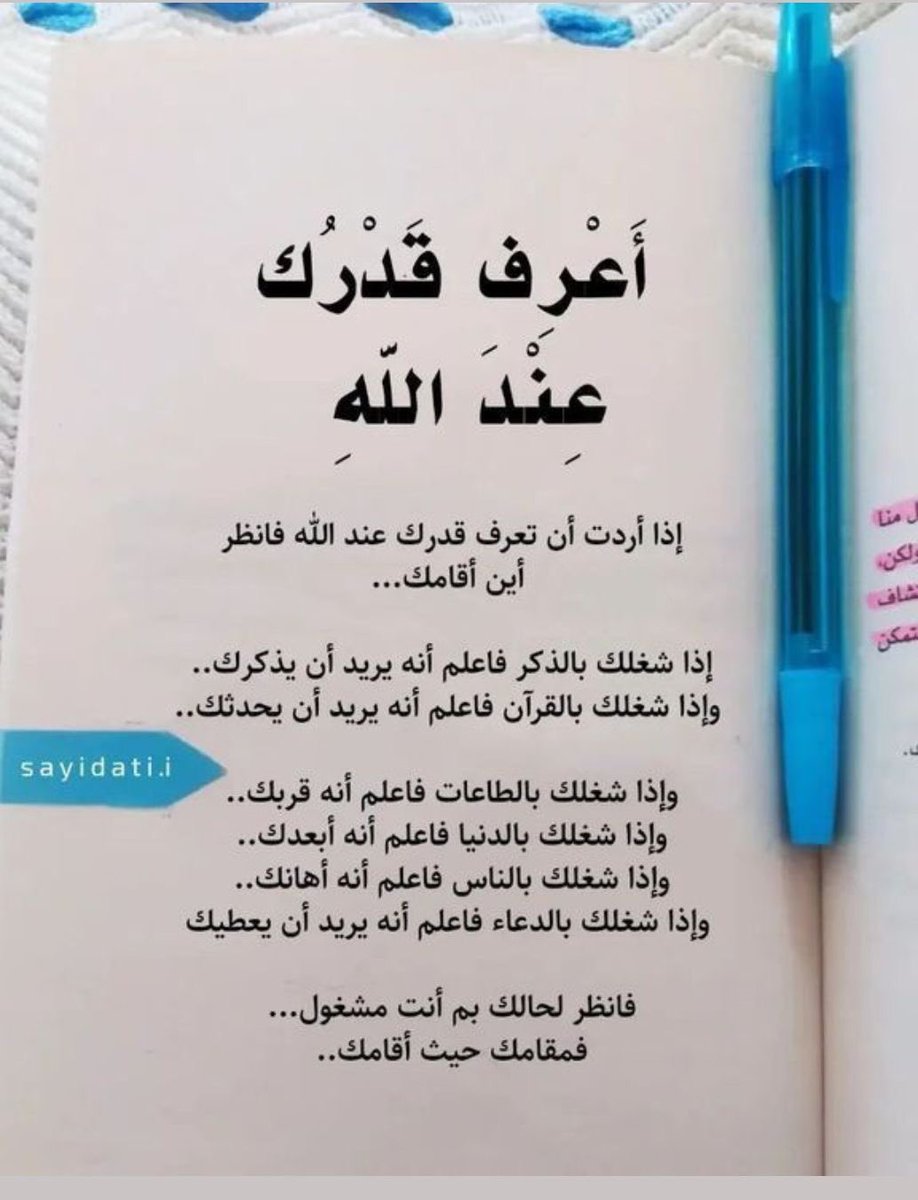 أَعْرِف قَدْرُك
عِنْدَ اللّهِ
إذا أردت أن تعرف قدرك عند الله فانظر
أين أقامك...
إذا شغلك بالذكر فاعلم أنه يريد أن يذكرك..
وإذا شغلك بالقرآن فاعلم أنه يريد أن يحدثك..
sayidati.i
وإذا شغلك بالطاعات فاعلم أنه قربك..
وإذا شغلك بالدنيا فاعلم أنه أبعدك..
وإذا شغلك بالناس فاعلم أنه أهانك..
وإذا شغلك بالدعاء فاعلم أنه يريد أن يعطيك
فانظر لحالك بم أنت مشغول...
فمقامك حيث أقامك..
منا